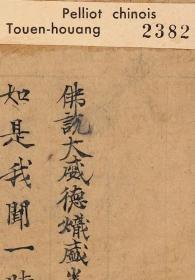 Pelliot chinois
Touen-houang 2382
佛說大威德熾盛光
如是我聞一時